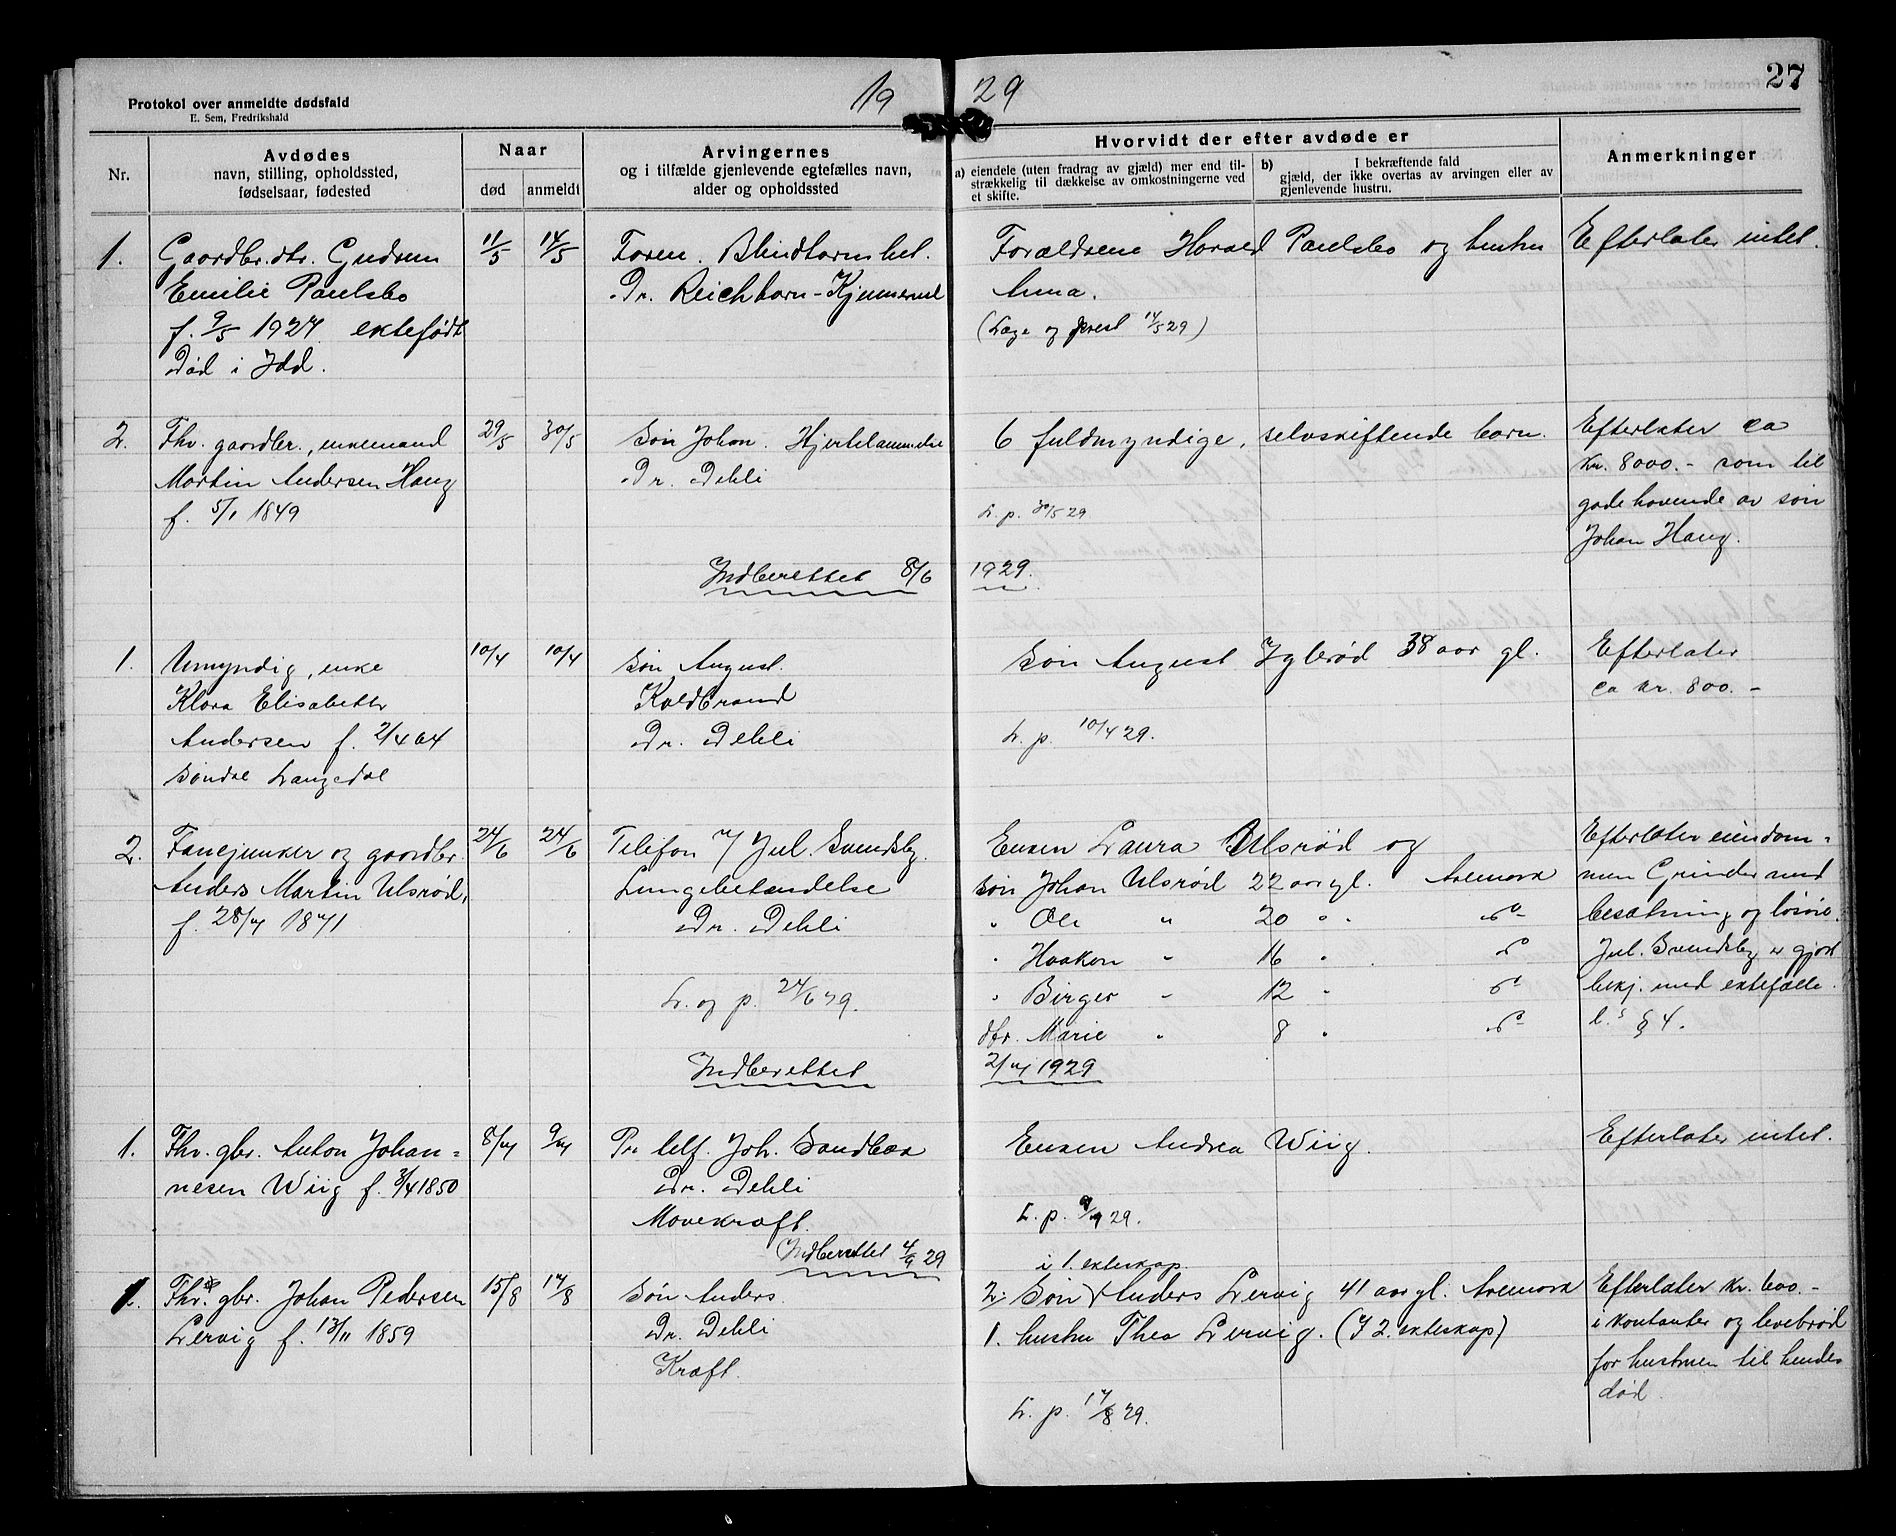 19 29
27
Protokol over anmeldte dødsfald
E. Sem, Fredrikshald
Nr.
Avdødes
navn, stilling, opholdssted,
fødselsaar, fødested
Naar
død
anmeldt
Arvingernes
og i tilfælde gjenlevende egtefælles navn,
alder og opholdssted
Hvorvidt der efter avdøde er
a) eiendele (uten fradrag av gjæld) mer end til-
strækkelig til dækkelse av omkostningerne ved
et skifte.
b) I bekræftende fald
gjæld, der ikke overtas av arvingen eller av
gjenlevende hustru.
Anmerkninger
1.
Gaardbr.dtr. Gudrun
Emilie Paulsbo
f. 9/5 1927 ektefødt
Død i Idd.
11/5
14/5
Faren. Blindtarmsbet.
Dr. Reichborn-Kjennerud
Forældrene Harald Paulsbo og hustru
Anna.
(Læge og prest 14/5 29)
Efterlater intet.
2.
Fhv. gaardbr., enkemand
Martin Andersen Haug
f. 5/1 1849
29/5
30/5
Søn Johan. Hjertelammelse
Dr. Dehli
6 fuldmyndige, selvskiftende barn.
L. p. 30/5 29
Efterlater ca
kr. 8000.- som til
gode havende av søn
Johan Haug.
Indberettet 8/6 1929.
1.
Umyndig, enke
Klara Elisabeth
Andersen f. 2/4 64
Søndre Langedal
10/4
10/4
Søn August.
Koldbrand
Dr. Dehli
Søn August Iglerød 38 aar gl.
L. p. 10/4 29.
Efterlater
ca kr. 800.-
2.
Fanejunker og gaardbr.
Anders Martin Ulsrød,
f. 28/7 1871
24/6
24/6
Telefon v/ Jul. Svendsby.
Lungebetændelse
Dr. Dehli
L. og p. 24/6 29.
Enken Laura Ulsrød og
søn Johan Ulsrød 22 aar gl. Aremark
" Ole " 20 " " do
" Haakon " 16 " do
" Birger " 12 " do
dtr. Marie " 8 " do
Efterlater eiendom-
men Grinder med
besætning og løsøre.
Jul. Svendsby er gjort
bekj. med ektefælle
l.s § 4.
Indberettet 2/7 1929
1.
Fhv. gbr. Anton Johan-
nesen Wiig f. 3/4 1850
8/7
9/7
Pr telf. Joh. Sandbæk
Dr. Dehli
Mavekræft.
Enken Andrea Wiig.
L. p. 9/7 29.
Efterlater intet.
Indberettet 4/9 29
1.
Fhv. gbr. Johan Pedersen
Lervig f. 13/11 1859
15/8
17/8
Søn Anders
Dr. Dehli
Kræft.
i 1. ekteskap
2. Søn Anders Lervig 41 aar gl. Aremark
1. hustru Thea Lervig. (I 2. ekteskap)
L. p. 17/8 29.
Efterlater kr. 600.-
i kontanter og levebrød
for hustruen til hendes
død.